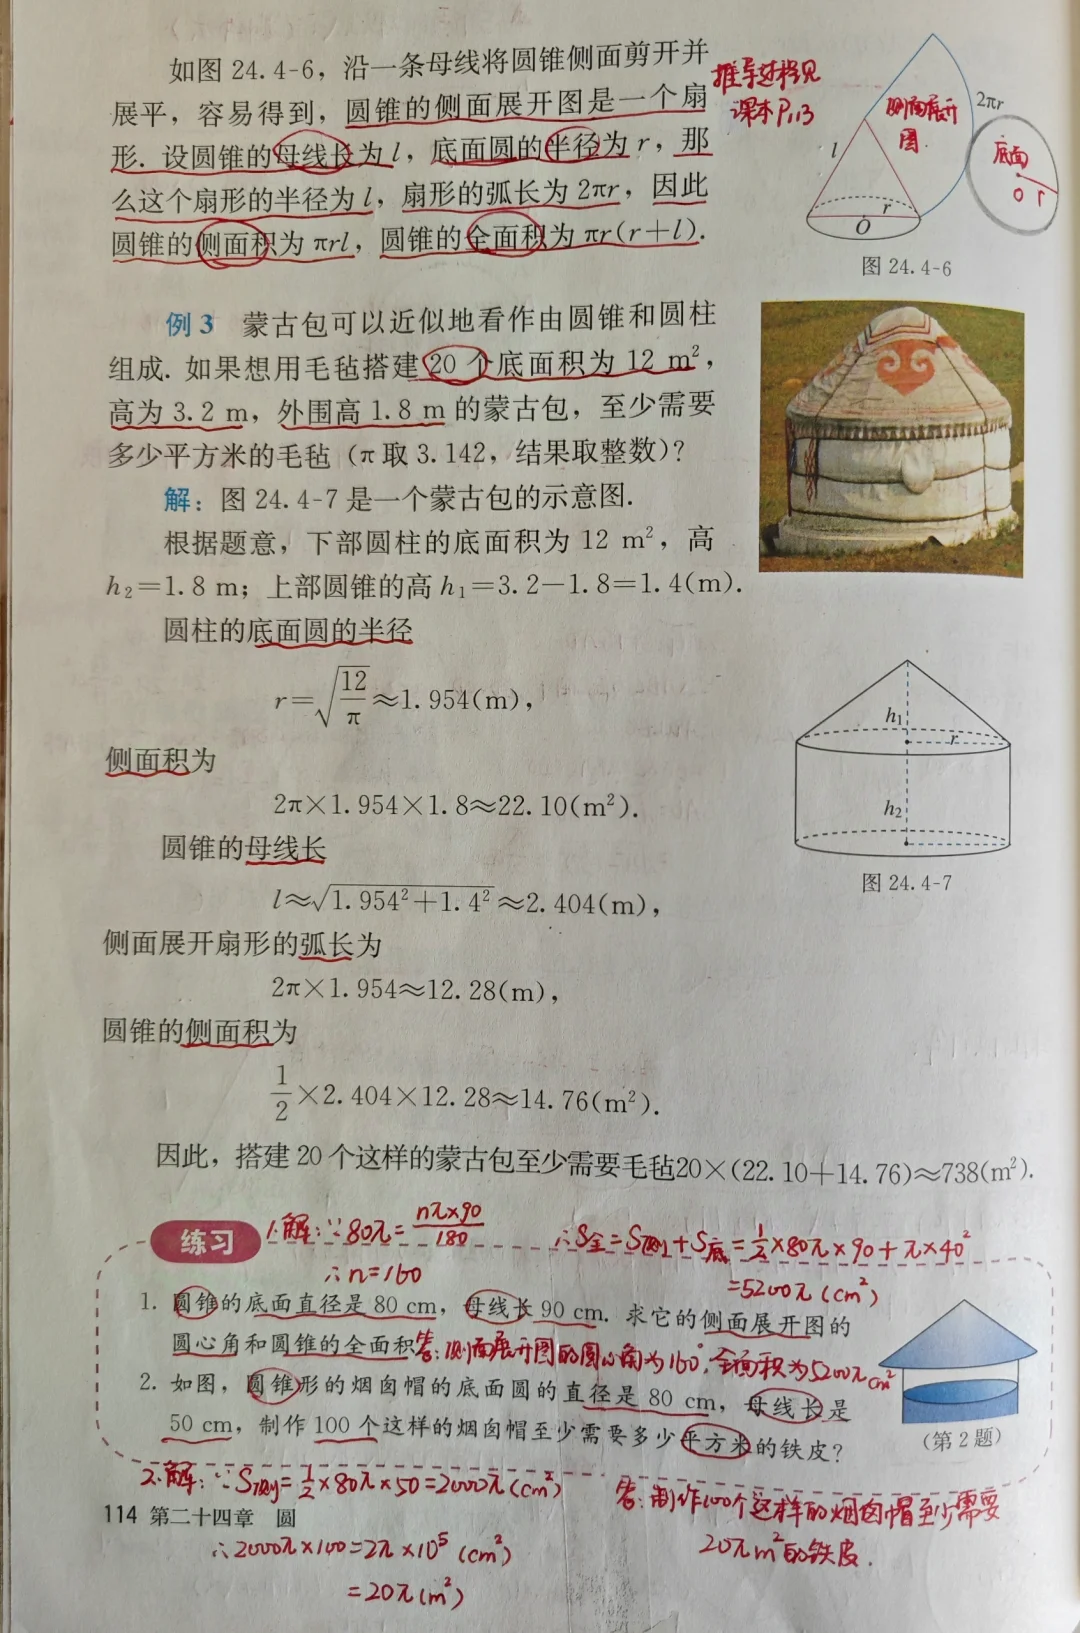 如图 24.4-6，沿一条母线将圆锥侧面剪开并
展平，容易得到，圆锥的侧面展开图是一个扇
形. 设圆锥的母线长为 l，底面圆的半径为 r，那
么这个扇形的半径为 l，扇形的弧长为 2πr，因此
圆锥的侧面积为 πrl，圆锥的全面积为 πr(r+l).
推导过程见
课本P113
侧面展开
图.
2πr
底面
O r
l
r
O
图 24.4-6
例 3 蒙古包可以近似地看作由圆锥和圆柱
组成. 如果想用毛毡搭建 20 个底面积为 12 m²，
高为 3.2 m，外围高 1.8 m 的蒙古包，至少需要
多少平方米的毛毡（π 取 3.142，结果取整数）？
解：图 24.4-7 是一个蒙古包的示意图.
根据题意，下部圆柱的底面积为 12 m²，高
h₂=1.8 m；上部圆锥的高 h₁=3.2−1.8=1.4(m).
圆柱的底面圆的半径
r=√(12/π)≈1.954(m)，
侧面积为
2π×1.954×1.8≈22.10(m²).
圆锥的母线长
l≈√(1.954²+1.4²)≈2.404(m)，
侧面展开扇形的弧长为
2π×1.954≈12.28(m)，
圆锥的侧面积为
1/2×2.404×12.28≈14.76(m²).
h₁
r
h₂
图 24.4-7
因此，搭建 20 个这样的蒙古包至少需要毛毡20×(22.10+14.76)≈738(m²).
练习
1.解：∵80π=nπ×90/180
∴n=160
∴S全=S侧+S底=1/2×80π×90+π×40²
=5200π(cm²)
1. 圆锥的底面直径是 80 cm，母线长 90 cm. 求它的侧面展开图的
圆心角和圆锥的全面积.
答：侧面展开图的圆心角为160°，全面积为5200πcm²
2. 如图，圆锥形的烟囱帽的底面圆的直径是 80 cm，母线长是
50 cm，制作 100 个这样的烟囱帽至少需要多少平方米的铁皮？
（第 2 题）
2.解：∵S侧=1/2×80π×50=2000π(cm²)
∴2000π×100=2π×10⁵(cm²)
=20π(m²)
答：制作100个这样的烟囱帽至少需要
20πm²的铁皮.
114 第二十四章 圆